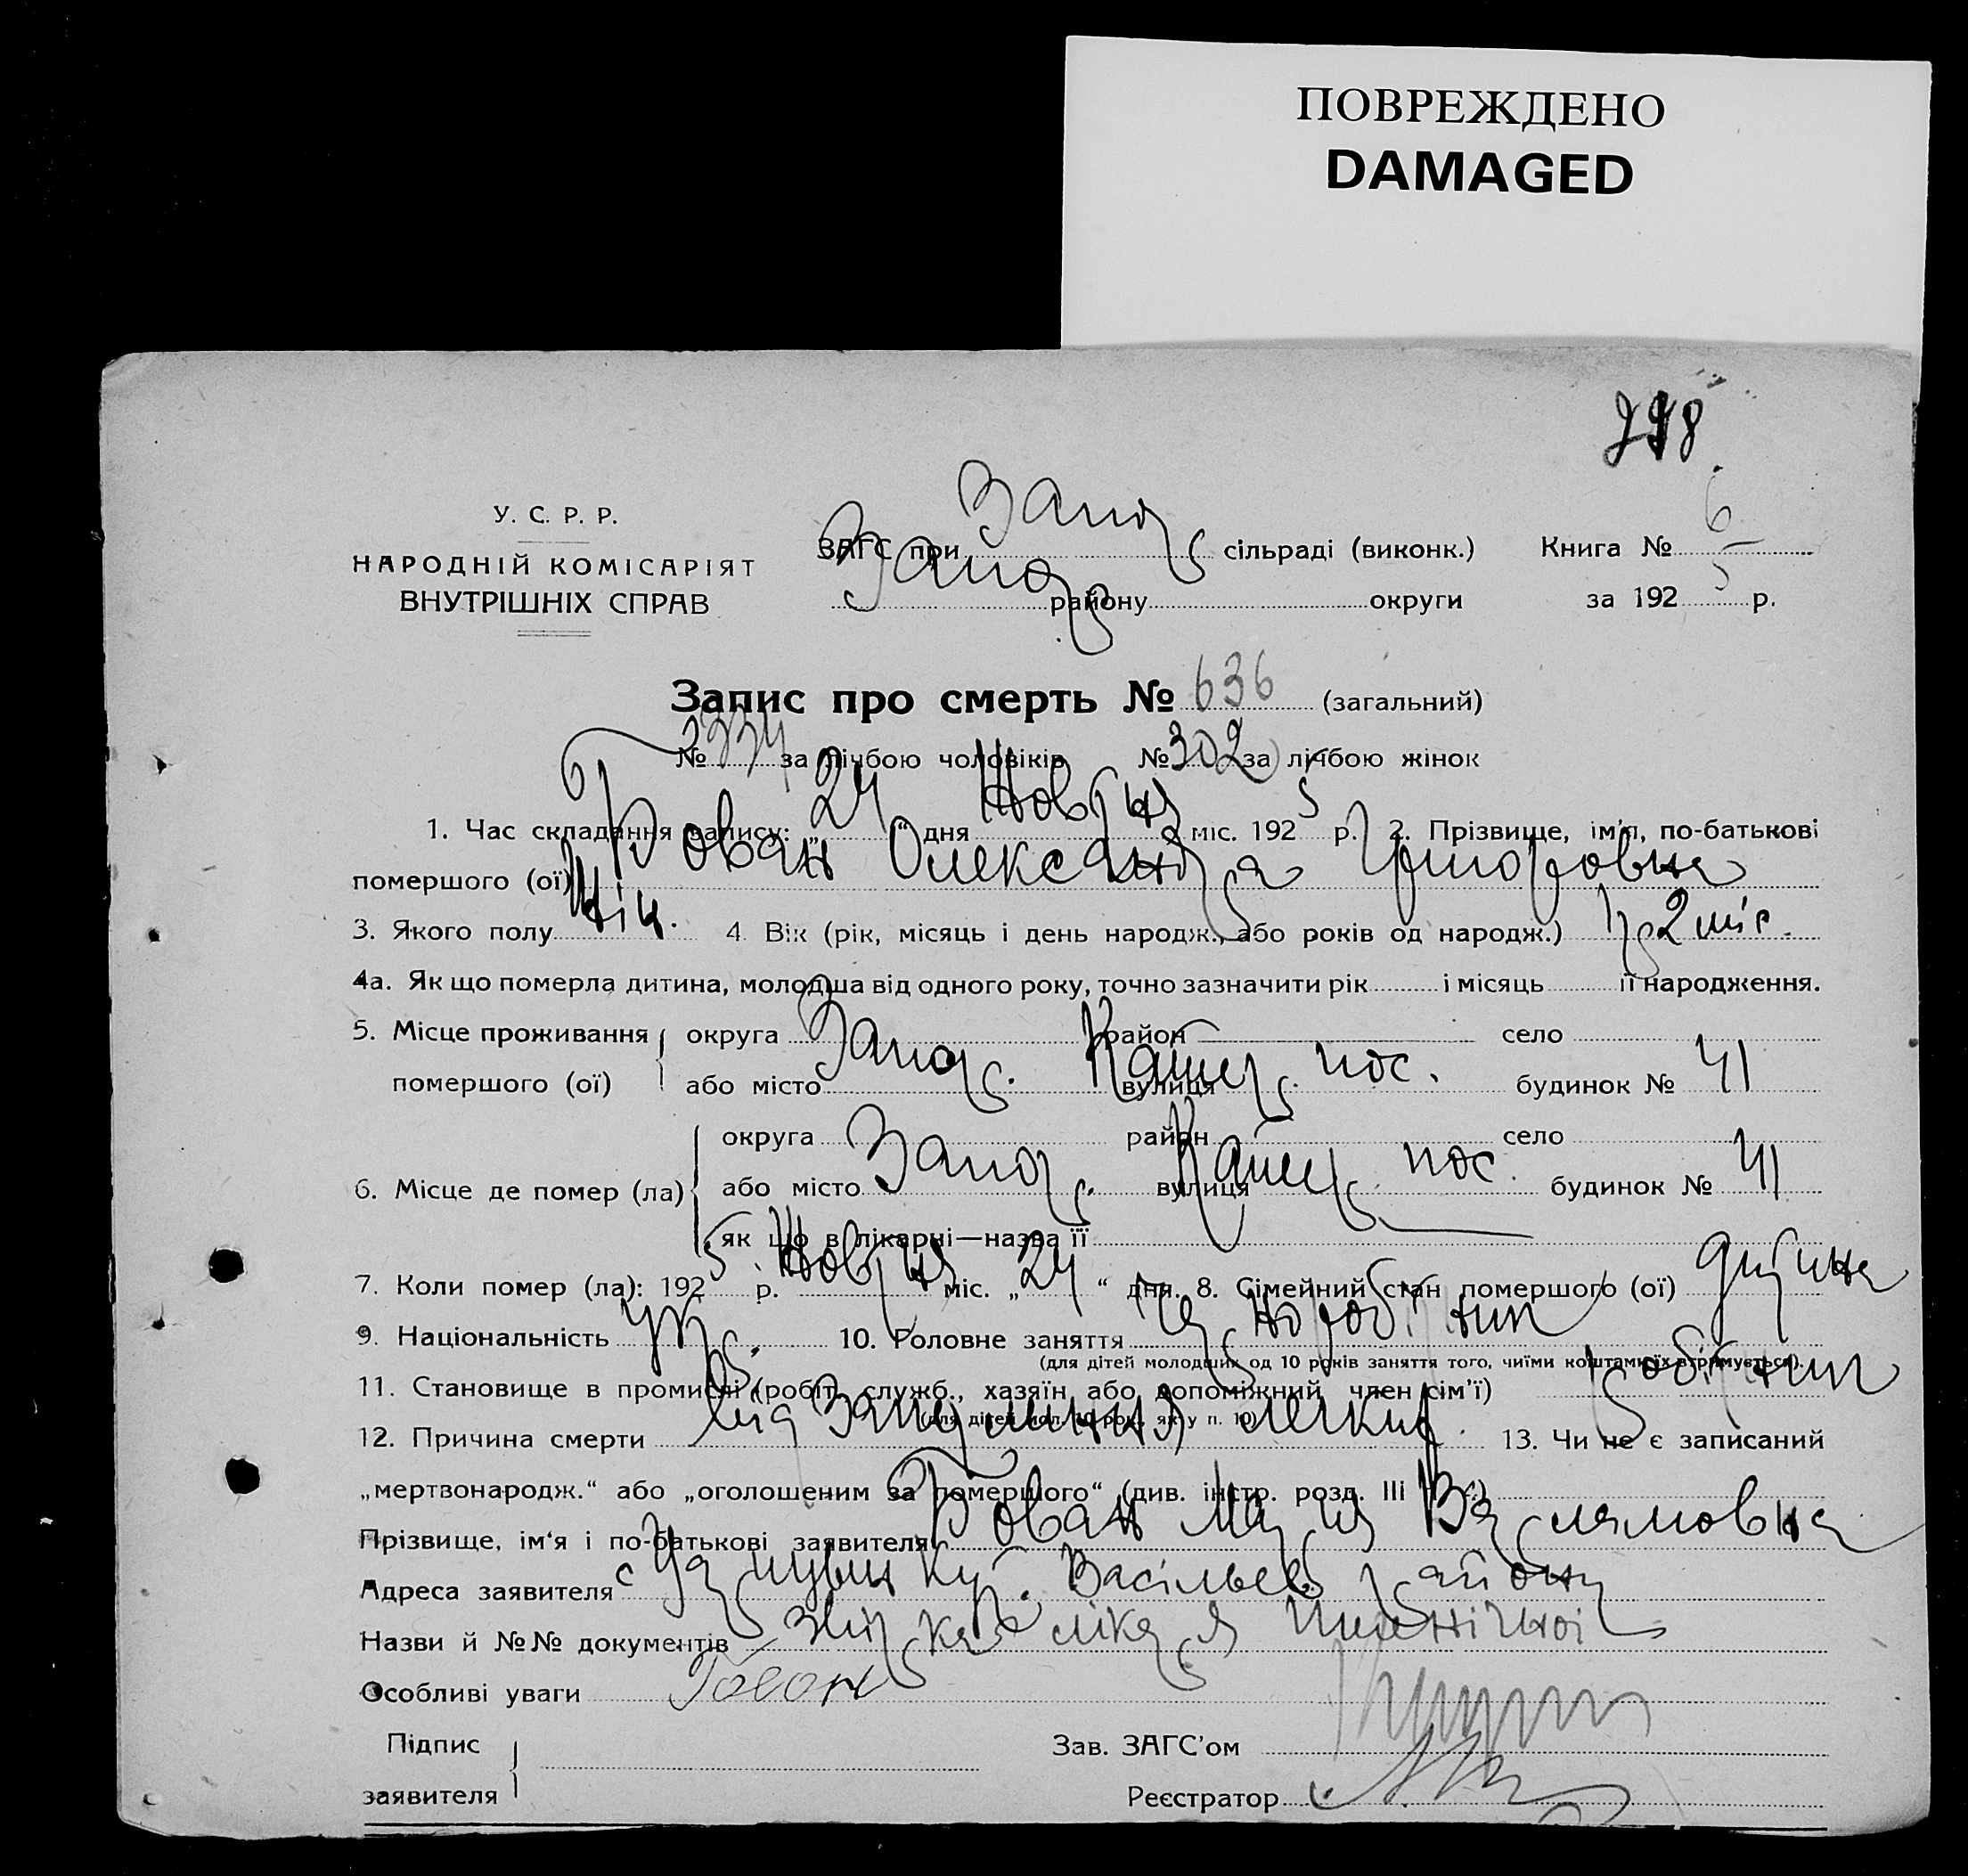 ПОВРЕЖДЕНО
DAMAGED
У. С. Р. Р.
НАРОДНІЙ КОМІСАРІЯТ
ВНУТРІШНІХ СПРАВ
ЗАГС при Запор. сільраді (виконк.) Книга № 6
Запор району округи за 1925 р.
Запис про смерть № 636 (загальний)
№ 334 за лічбою чоловіків № 302 за лічбою жінок
1. Час складання запису: „24“ дня Жовтня міс. 1925 р. 2. Прізвище, ім'я, по-батькові
помершого (ої) Бован Олександра Григоровна
3. Якого полу жін. 4. Вік (рік, місяць і день народж., або років од народж.) 1 р 2 міс.
4а. Як що померла дитина, молодша від одного року, точно зазначити рік і місяць її народження.
5. Місце проживання округа район село
помершого (ої) або місто Запор. вулиця пос. будинок № 41
6. Місце де помер (ла) округа район село
або місто Запор. вулиця пос. будинок № 41
як що в лікарні—назва її
7. Коли помер (ла): 1925 р. Жовтня міс. „24“ дня. 8. Сімейний стан помершого (ої) дитина
9. Національність укр. 10. Головне заняття Чорноробітник
(для дітей молодших од 10 років заняття того, чиїми коштами їх втримується).
11. Становище в промислі (робіт., служб., хазяїн або допоміжний член сім'ї) Робітник
(для дітей мол. 10 рок., як у п. 10)
12. Причина смерти від Запалення легких. 13. Чи не є записаний
„мертвонародж.“ або „оголошеним за помершого“ (див. інстр. розд. III
Прізвище, ім'я і по-батькові заявителя Бован Марія
Адреса заявителя с. Васільев. району
Назви й №№ документів Звідка лікаря
Особливі уваги
Підпис
заявителя
Зав. ЗАГС'ом
Реєстратор